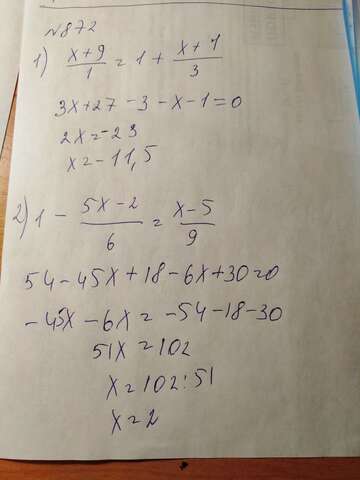 №872
1) x+9/1 = 1 + x+1/3
3x+27-3-x-1=0
2x=-23
x=-11,5
2) 1 - 5x-2/6 = x-5/9
54-45x+18-6x+30=0
-45x-6x=-54-18-30
51x=102
x=102:51
x=2